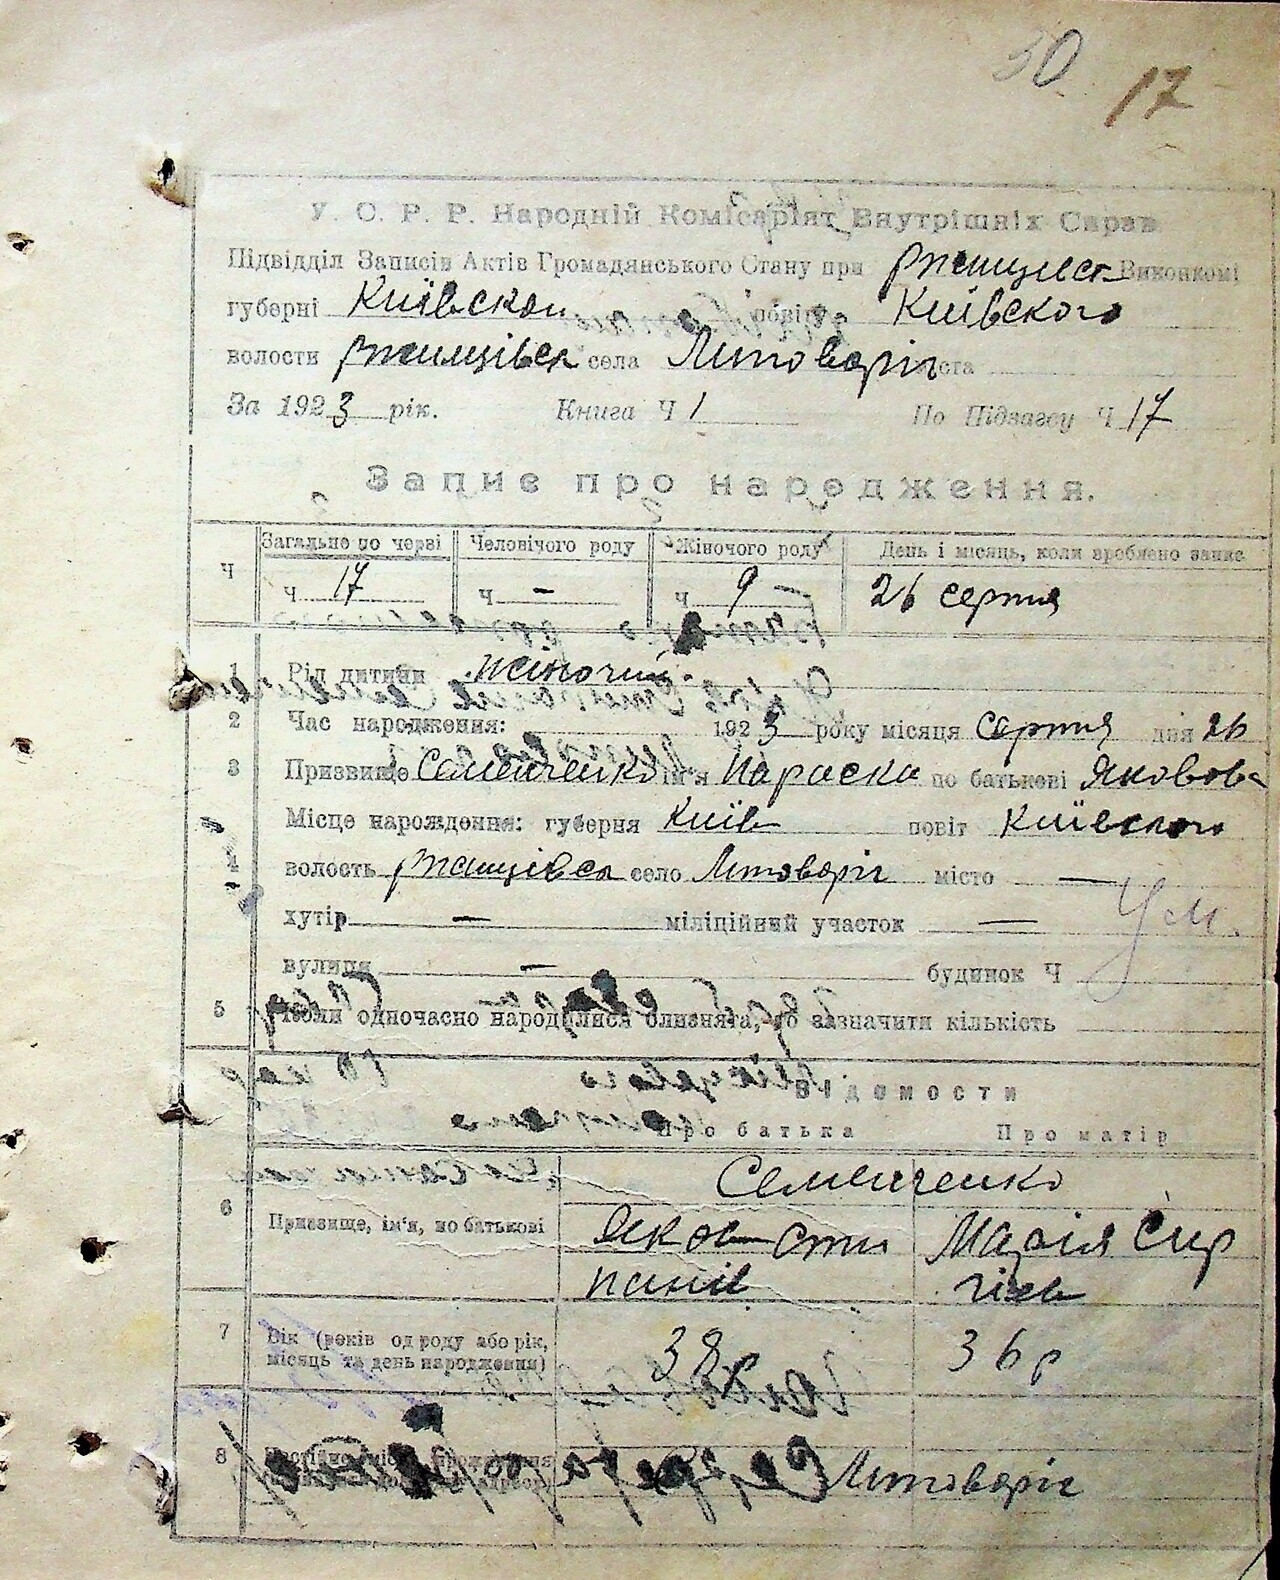 30 17
У. С. Р. Р. Народній Комісаріят Внутрішніх Справ
Підвідділ Записів Актів Громадянського Стану при Ржищевск Виконкомі
губерні Київскои повіту Київского
волости Ржищівск села Литовваріг міста
За 1923 рік. Книга Ч 1 По Підзагсу Ч 17
Запис про народження.
Ч Загальне по черві Человічого роду Жіночого роду День і місяць, коли зроблено запис
ч 17 ч — ч 9 26 серпня
1 Рід дитини жіночий.
2 Час народження: 1923 року місяця серпня дня 26
3 Призвище Семенченко ім'я Параска по батькові Яковова
Місце нарождення: губерня Київ повіт Київского
4 волость Ржищівск село Литовваріг місто —
хутір — міліційний участок — Ум.
вулиця — будинок Ч
5 Яколи одночасно народилися близнята, то зазначити кількість
Відомости
Про батька Про матір
Семенченко
6 Призвище, ім'я, по батькові Яков Сти Марія Сир
панів гієв
7 Вік (років од роду або рік, 38 р 36 р
місяць та день народження)
8 Литовваріг